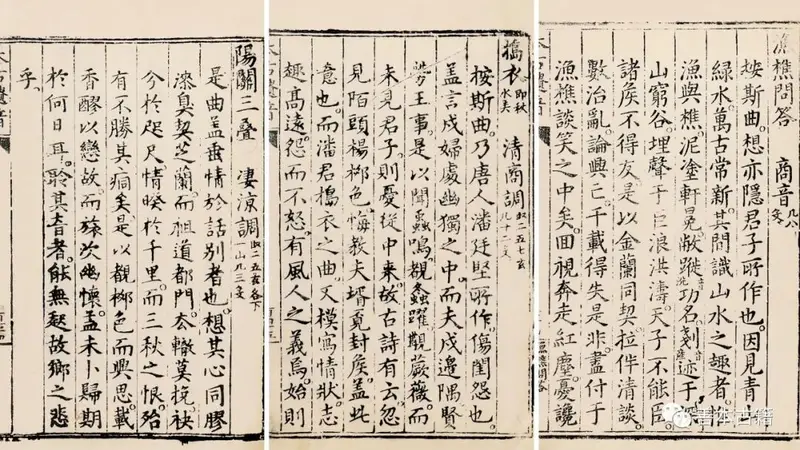 漁樵問答 商音
桉斯曲。想亦隱君子所作也。因見青
綠水。萬古常新。其問識山水之趣者。惟
漁與樵。泥塗軒冕。敝蹝功名。剗跡于
山窮谷。埋聲于巨浪洪濤。天子不能臣。
諸矦不得友。是以金蘭同契。拉伴清談。
數治亂。論興亡。千載得失是非。盡付于
漁樵談笑之中矣。回視奔走紅塵。憂讒
漁樵問答
擣衣 即秋 清商調
桉斯曲。乃唐人潘廷堅所作。傷閨怨也。
盖言戍婦處幽獨之中。而夫戍邊隅。賢
勞王事。是以聞蟲鳴。觀螽躍。觀蕨薇。而
未見君子。則憂從中來。故古詩有云。忽
見陌頭楊柳色。悔敎夫壻覓封矦。盖此
意也。而潘君擣衣之曲。又模寫情狀。志
趣高遠。怨而不怒。有風人之義焉。始則
太古遺音
陽關三叠 凄涼調
是曲盖垂情於話別者也。想其心同膠
漆。臭契芝蘭。而祖道都門。轍莫挽。袂
分於咫尺。情暌於千里。而三秋之恨。殆
有不勝其痌矣。是以觀柳色而興思。載
香醪以戀故。而旅次幽懷。盖未卜歸期
於何日耳。聆其音者。能無起故鄉之悲
乎。
太古遺音
善本古籍